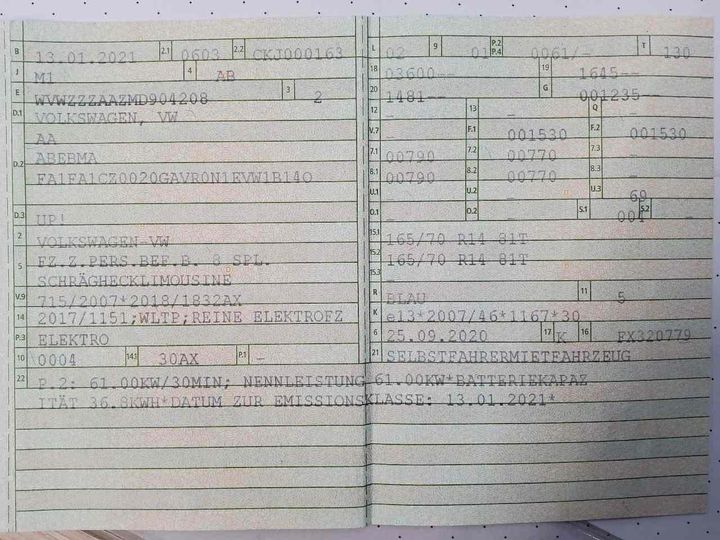 B 13.01.2021 2.1 0603 2.2 CKJ000163
J M1 4 AB
E WVWZZZAAZMD904208 3 2
D.1 VOLKSWAGEN, VW
AA
D.2 ABEBMA
FA1FA1CZ0020GAVR0N1EVW1B14O
D.3 UP!
2 VOLKSWAGEN-VW
5 FZ.Z.PERS.BEF.B. 8 SPL.
SCHRÄGHECKLIMOUSINE
V.9 715/2007*2018/1832AX
14 2017/1151;WLTP;REINE ELEKTROFZ
P.3 ELEKTRO
10 0004 14.1 30AX P.1 -
L 02 9 01 P.2 P.4 0061/- T 130
18 03600-- 19 1645--
20 1481-- G 001235--
12 - 13 - Q -
V.7 - F.1 001530 F.2 001530
7.1 00790 7.2 00770 7.3 -
8.1 00790 8.2 00770 8.3 -
U.1 - U.2 - U.3 69
O.1 - O.2 - S.1 004 S.2 -
15.1 165/70 R14 81T
15.2 165/70 R14 81T
15.3 -
R BLAU 11 5
K e13*2007/46*1167*30
6 25.09.2020 17 K 16 FX320779
21 SELBSTFAHRERMIETFAHRZEUG
22 P.2: 61.00KW/30MIN; NENNLEISTUNG 61.00KW*BATTERIEKAPAZ
ITÄT 36.8KWH*DATUM ZUR EMISSIONSKLASSE: 13.01.2021*